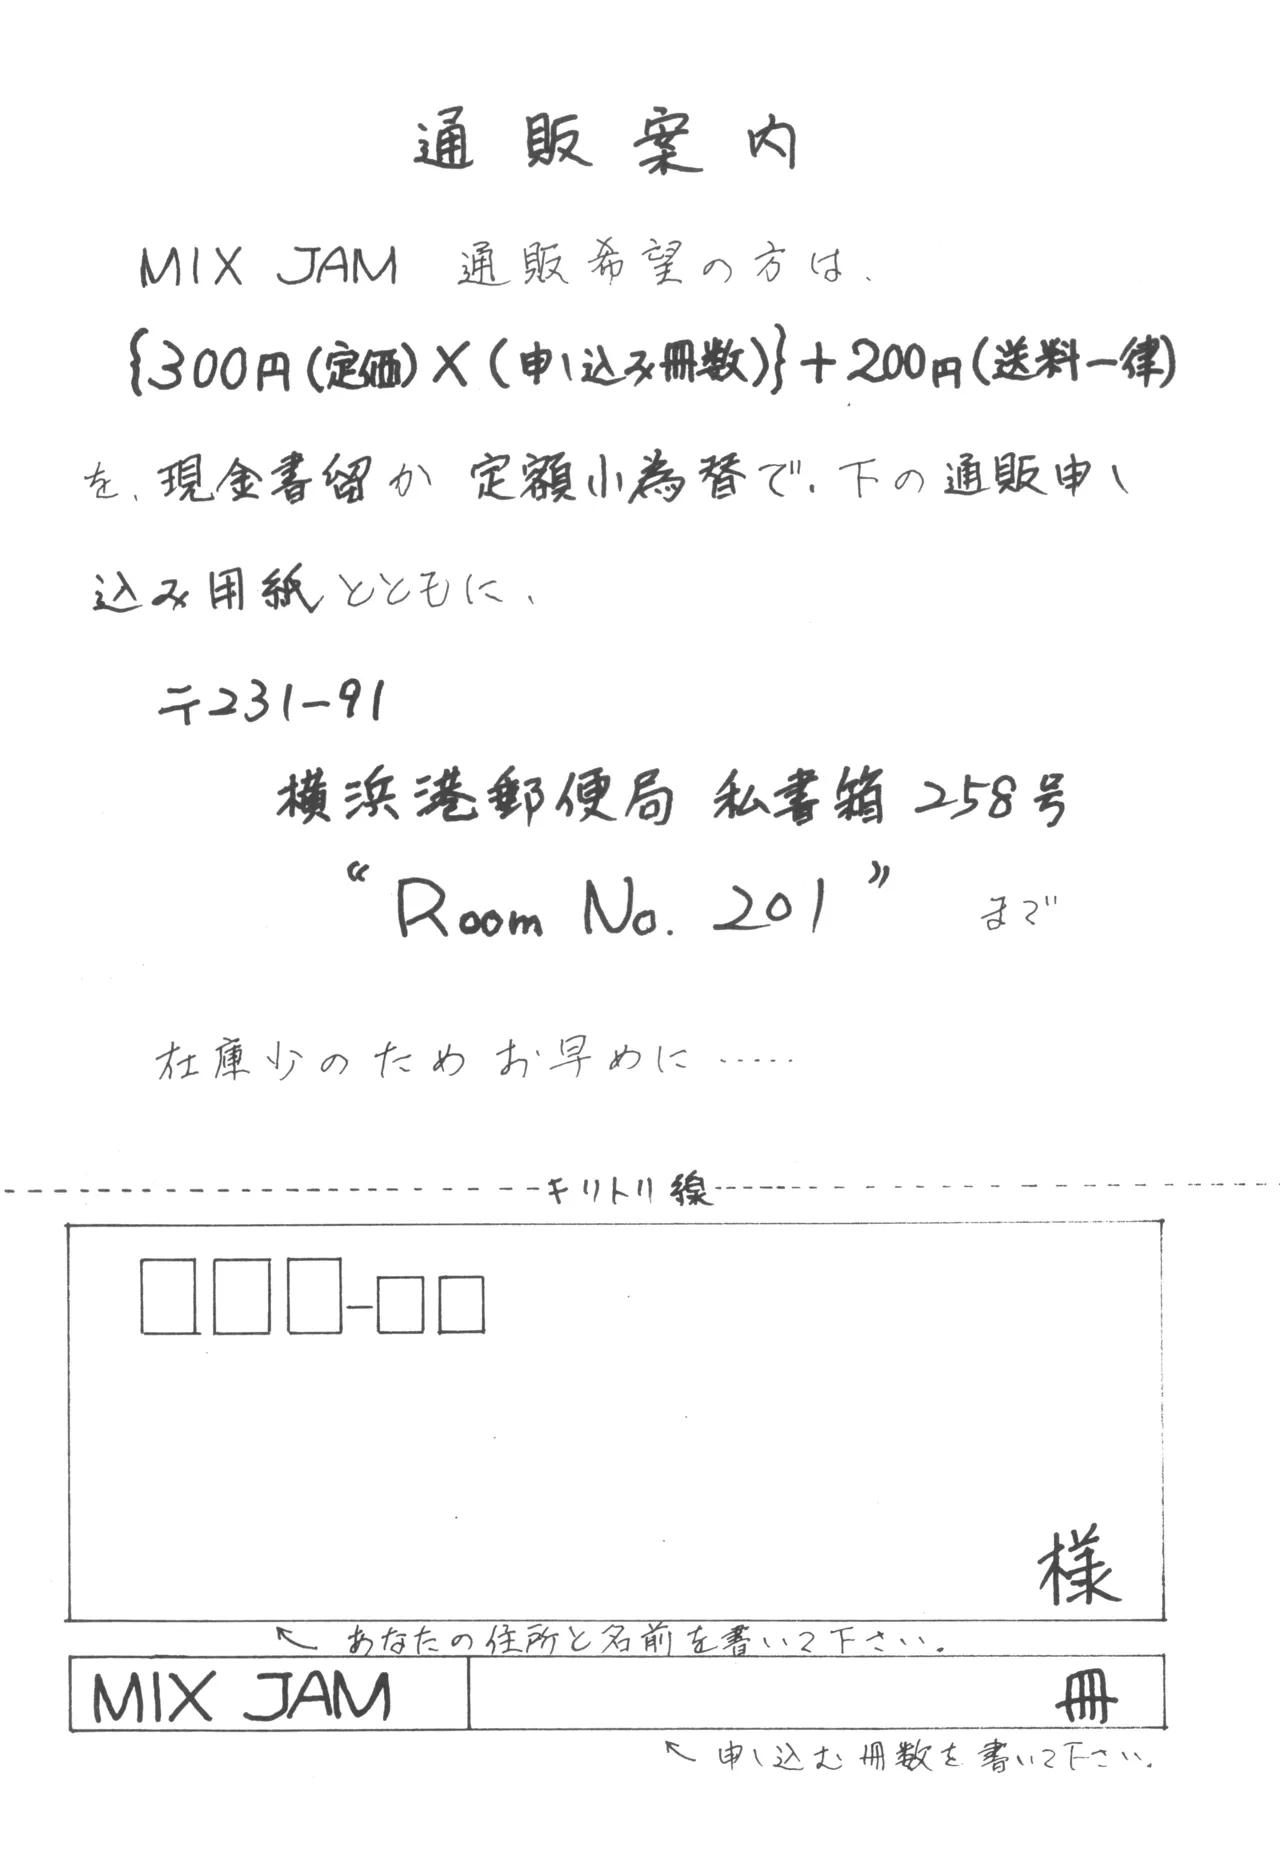 通販案内
MIX JAM 通販希望の方は、
{300円(定価)×(申し込み冊数)}+200円(送料一律)
を、現金書留か 定額小為替で、下の通販申し
込み用紙とともに、
〒231-91
横浜港郵便局 私書箱 258号
“Room No. 201” まで
在庫少のためお早めに……
キリトリ線
様
↖ あなたの住所と名前を書いて下さい。
MIX JAM 冊
↖ 申し込む冊数を書いて下さい。